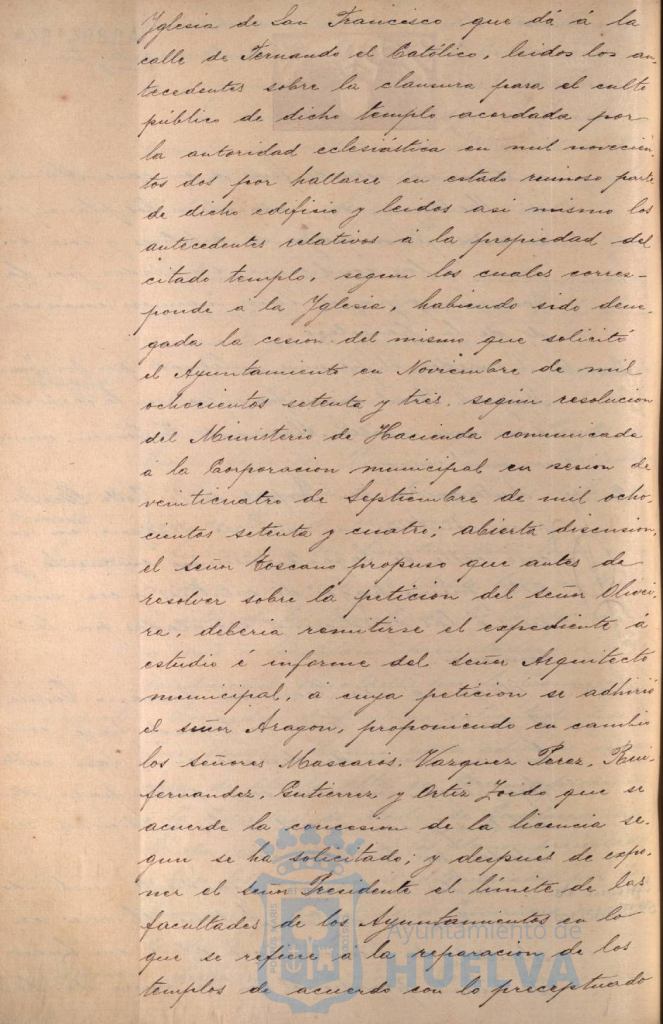 Yglesia de San Francisco que dá á la
calle de Fernando el Católico, leidos los an-
tecedentes sobre la clausura para el culto
público de dicho templo acordada por
la autoridad eclesiástica en mil novecien-
tos dos por hallarse en estado ruinoso parte
de dicho edificio y leidos asi mismo los
antecedentes relativos á la propiedad del
citado templo, segun los cuales corres-
ponde á la Yglesia, habiendo sido dene-
gada la cesion del mismo que solicitó
el Ayuntamiento en Noviembre de mil
ochocientos setenta y tres, segun resolucion
del Ministerio de Hacienda comunicada
á la Corporacion municipal en sesion de
veinticuatro de Septiembre de mil ocho-
cientos setenta y cuatro; abierta discusion,
el señor Toscano propuso que antes de
resolver sobre la peticion del señor Olivei-
ra, deberia remitirse el expediente á
estudio é informe del señor Arquitecto
municipal, á cuya peticion se adhirió
el señor Aragon, proponiendo en cambio
los señores Mascarós, Vazquez Perez, Rui-
fernandez, Gutierrez y Ortiz Zoido que se
acuerde la concesion de la licencia se-
gun se ha solicitado; y después de expo-
ner el señor Presidente el límite de las
facultades de los Ayuntamientos en lo
que se refiere á la reparacion de los
templos de acuerdo con lo preceptuado
Ayuntamiento de
HUELVA